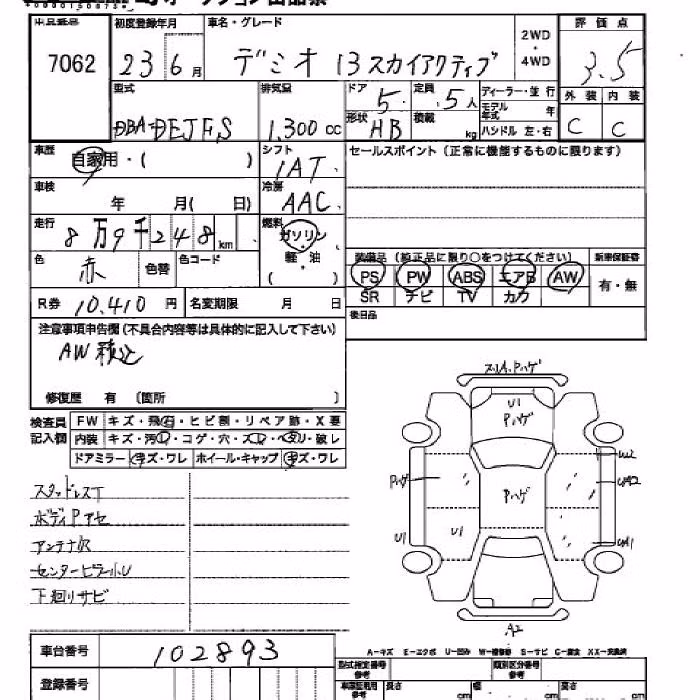 出品番号 初度登録年月 車名・グレード 2WD・4WD 評価点
7062 23 6月 デミオ 13スカイアクティブ 3.5
型式 排気量 ドア 5 定員 5人 ディーラー・並行 外装 内装
DBA-DEJFS 1,300cc 形状 HB 積載 kg モデル年式 年 C C
ハンドル 左・右
車歴 自家用・( ) シフト 1AT セールスポイント(正常に機能するものに限ります)
車検 年 月( 日) 冷房 AAC
走行 8万9千248km 燃料 ガソリン・軽・油 ( )
色 赤 色替 色コード 装備品(純正品に限り○をつけてください) 新車保証書
PS PW ABS エアB AW 有・無
SR ナビ TV カワ
R券 10,410円 名変期限 月 日 後日品
注意事項申告欄(不具合内容等は具体的に記入して下さい)
AW積込
修復歴 有 〔箇所 〕
検査員記入欄
FW キズ・飛石・ヒビ割・リペア跡・X要
内装 キズ・汚レ・コゲ・穴・スレ・ヘタリ・破レ
ドアミラー キズ・ワレ ホイール・キャップ キズ・ワレ
スタッドレスT
ボディPアセ
アンテナ欠
センターピラー小U
下廻りサビ
スリA.Pハゲ
U1
Pハゲ
W2
Pハゲ
Pハゲ
UA2
U1
U1
UA1
A2
A-キズ E-エクボ U-凹み W-補修跡 S-サビ C-腐食 XX-交換済
車台番号 102893 型式指定番号 類別区分番号
登録番号 長さ cm 幅 cm 高さ cm